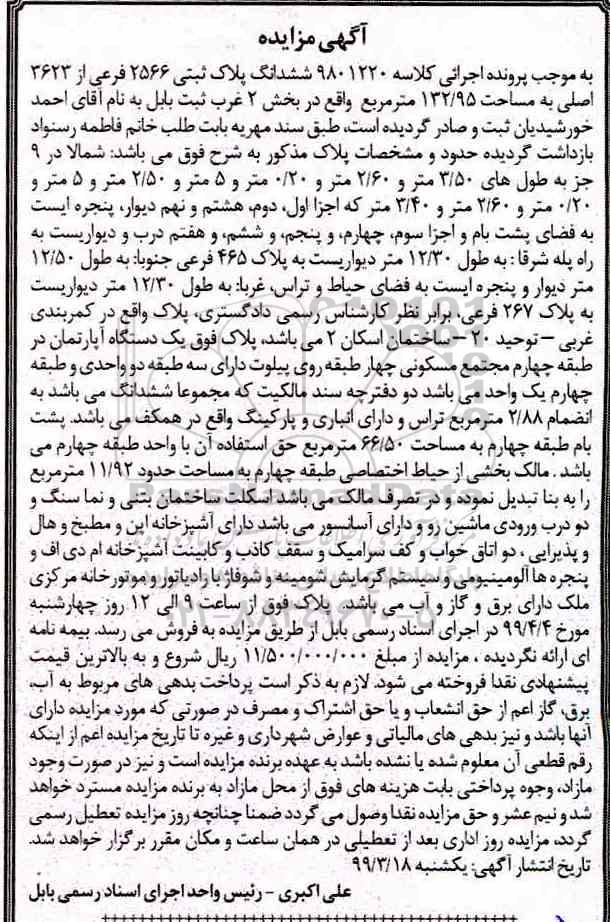 آگهی مزایده
به موجب پرونده اجرائی کلاسه ۹۸۰۱۲۲۰ ششدانگ پلاک ثبتی ۲۵۶۶ فرعی از ۳۶۲۳
اصلی به مساحت ۱۳۲/۹۵ مترمربع واقع در بخش ۲ غرب ثبت بابل به نام آقای احمد
خورشیدیان ثبت و صادر گردیده است، طبق سند مهریه بابت طلب خانم فاطمه رسنواد
بازداشت گردیده حدود و مشخصات پلاک مذکور به شرح فوق می باشد: شمالا در ۹
جز به طول های ۳/۵۰ متر و ۲/۶۰ متر و ۰/۲۰ متر و ۵ متر و ۲/۵۰ متر و ۵ متر و
۰/۲۰ متر و ۲/۶۰ متر و ۳/۴۰ متر که اجزا اول، دوم، هشتم و نهم دیوار، پنجره ایست
به فضای پشت بام و اجزا سوم، چهارم، و پنجم، و ششم، و هفتم درب و دیواریست به
راه پله شرقا : به طول ۱۲/۳۰ متر دیواریست به پلاک ۴۶۵ فرعی جنوبا: به طول ۱۲/۵۰
متر دیوار و پنجره ایست به فضای حیاط و تراس، غربا: به طول ۱۲/۳۰ متر دیواریست
به پلاک ۲۶۷ فرعی، برابر نظر کارشناس رسمی دادگستری، پلاک واقع در کمربندی
غربی – توحید ۲۰ – ساختمان اسکان ۲ می باشد، پلاک فوق یک دستگاه آپارتمان در
طبقه چهارم مجتمع مسکونی چهار طبقه روی پیلوت دارای سه طبقه دو واحدی و طبقه
چهارم یک واحد می باشد دو دفترچه سند مالکیت که مجموعا ششدانگ می باشد به
انضمام ۲/۸۸ مترمربع تراس و دارای انباری و پارکینگ واقع در همکف می باشد. پشت
بام طبقه چهارم به مساحت ۶۶/۵۰ مترمربع حق استفاده آن با واحد طبقه چهارم می
باشد . مالک بخشی از حیاط اختصاصی طبقه چهارم به مساحت حدود ۱۱/۹۲ مترمربع
را به بنا تبدیل نموده و در تصرف مالک می باشد اسکلت ساختمان بتنی و نما سنگ و
دو درب ورودی ماشین رو و دارای آسانسور می باشد دارای آشپزخانه اپن و مطبخ و هال
و پذیرایی ، دو اتاق خواب و کف سرامیک و سقف کاذب و کابینت آشپزخانه ام دی اف و
پنجره ها آلومینیومی و سیستم گرمایش شومینه و شوفاژ با رادیاتور و موتورخانه مرکزی
ملک دارای برق و گاز و آب می باشد. پلاک فوق از ساعت ۹ الی ۱۲ روز چهارشنبه
مورخ ۹۹/۴/۴ در اجرای اسناد رسمی بابل از طریق مزایده به فروش می رسد. بیمه نامه
ای ارائه نگردیده ، مزایده از مبلغ ۱۱/۵۰۰/۰۰۰/۰۰۰ ریال شروع و به بالاترین قیمت
پیشنهادی نقدا فروخته می شود. لازم به ذکر است پرداخت بدهی های مربوط به آب،
برق، گاز اعم از حق انشعاب و یا حق اشتراک و مصرف در صورتی که مورد مزایده دارای
آنها باشد و نیز بدهی های مالیاتی و عوارض شهرداری و غیره تا تاریخ مزایده اعم از اینکه
رقم قطعی آن معلوم شده یا نشده باشد به عهده برنده مزایده است و نیز در صورت وجود
مازاد، وجوه پرداختی بابت هزینه های فوق از محل مازاد به برنده مزایده مسترد خواهد
شد و نیم عشر و حق مزایده نقدا وصول می گردد ضمنا چنانچه روز مزایده تعطیل رسمی
گردد، مزایده روز اداری بعد از تعطیلی در همان ساعت و مکان مقرر برگزار خواهد شد.
تاریخ انتشار آگهی: یکشنبه ۹۹/۳/۱۸
علی اکبری – رئیس واحد اجرای اسناد رسمی بابل